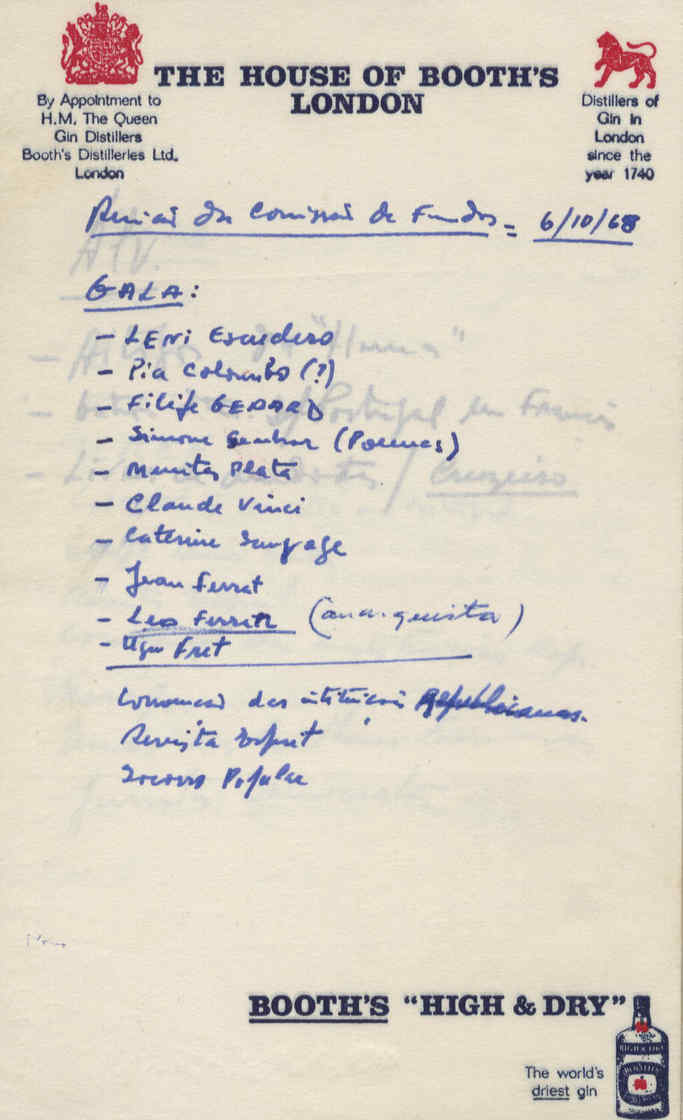 THE HOUSE OF BOOTH'S
LONDON
By Appointment to
H.M. The Queen
Gin Distillers
Booth's Distilleries Ltd.
London
Distillers of
Gin in
London
since the
year 1740
Reunião da Comissão de Fundos = 6/10/68
GALA:
- LENI Escudero
- Pia Colombo (?)
- Filipe GERARD
- Simone (Poemas)
- Manitas Plata
- Claude Vinci
- Caterine Sauvage
- Jean Ferrat
- Leo Ferrer (anarquista)
- Ugu Fret
das Republicanas.
Revista Esprit
Socorro Popular
BOOTH'S "HIGH & DRY"
The world's
driest gin
HIGH & DRY
BOOTH'S